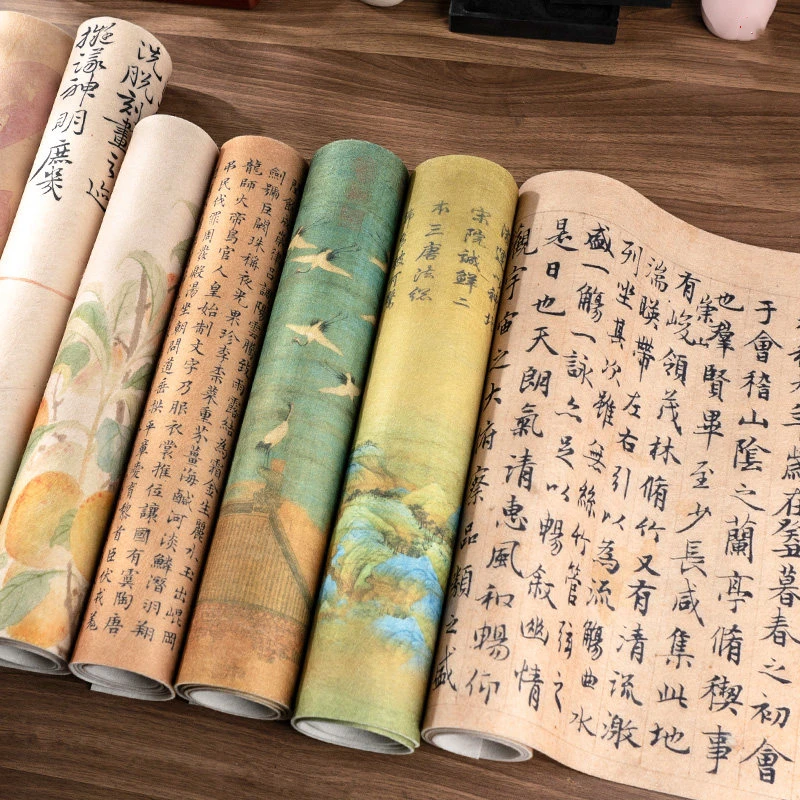 歲在癸丑暮春之初會
于會稽山陰之蘭亭脩稧事
也羣賢畢至少長咸集此地
有崇山峻領茂林脩竹又有清流激
湍暎帶左右引以為流觴曲水
列坐其次雖無絲竹管弦之
盛一觴一詠亦足以暢敘幽情
是日也天朗氣清惠風和暢仰
觀宇宙之大俯察品類之盛
宋院誠鮮二
本三唐法繪
成歲律呂調陽雲騰致雨露結為霜金生麗水玉出崐岡
劍號巨闕珠稱夜光果珍李柰菜重芥薑海鹹河淡鱗潛羽翔
龍師火帝鳥官人皇始制文字乃服衣裳推位讓國有虞陶唐
吊民伐罪周發殷湯坐朝問道垂拱平章愛育黎首臣伏戎羌
洗脫刻畫之迹
擬議神明庶幾